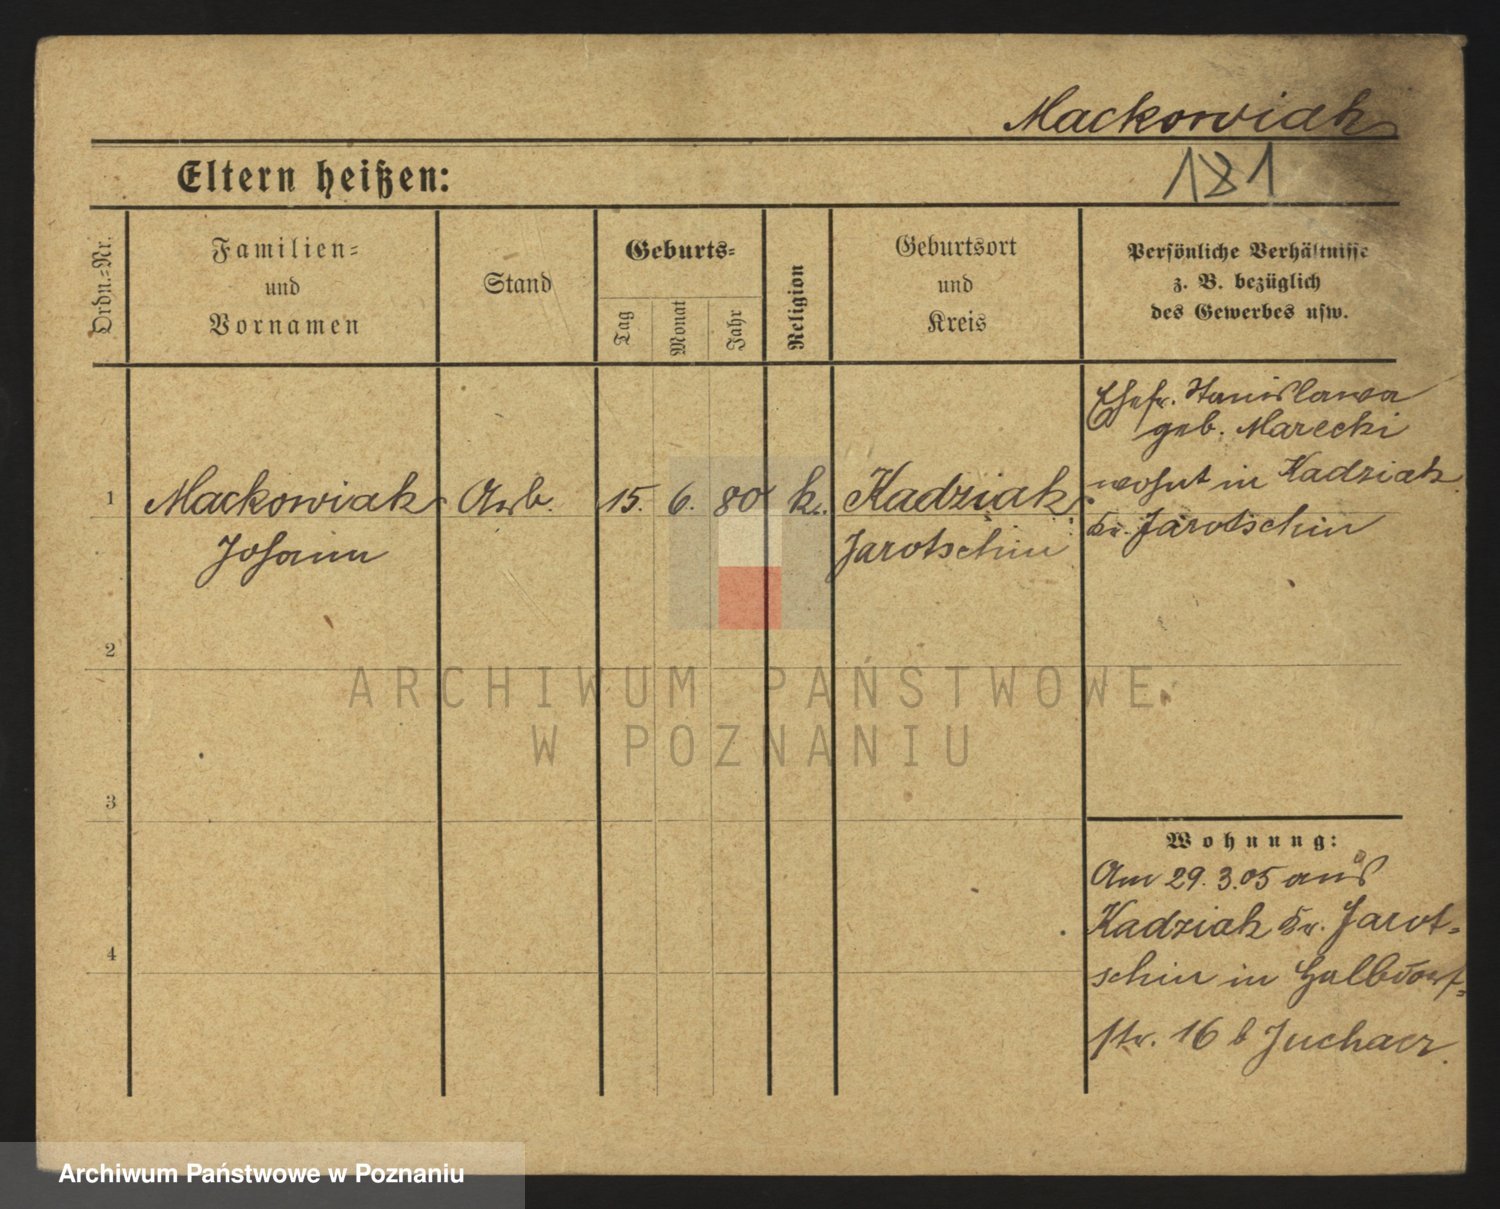 Mackowiak
181
Eltern heißen:
Ordn.=Nr.
Familien=
und
Vornamen
Stand
Geburts=
Tag
Monat
Jahr
Religion
Geburtsort
und
Kreis
Persönliche Verhältnisse
z. B. bezüglich
des Gewerbes usw.
1
Mackowiak
Johann
Arb.
15. 6. 80
k.
Kadziak
Jarotschin
Ehefr. Stanislawa
geb. Marecki
wohnt in Kadziak
Kr. Jarotschin
2
3
4
Wohnung:
Am 29. 3. 05 aus
Kadziak Kr. Jarot=
schin in Halbdorf=
str. 16 b
ARCHIWUM PAŃSTWOWE
W POZNANIU
Archiwum Państwowe w Poznaniu